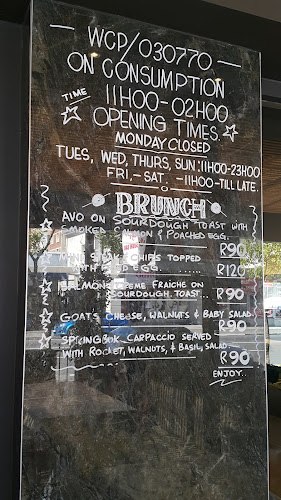 WCP/030770
ON CONSUMPTION
TIME 11H00-02H00
OPENING TIMES
MONDAY CLOSED
TUES, WED, THURS, SUN: 11H00-23H00
FRI, - SAT, -11H00-TILL LATE.
BRUNCH
AVO ON SOURDOUGH TOAST WITH
SMOKED SALMON & POACHED EGG.
R90
STEAK CHIPS TOPPED
WITH EGG. ........ R120
SALMON CREME FRAICHE ON
SOURDOUGH TOAST.. R90
GOATS CHEESE, WALNUTS & BABY SALAD.
R90
SPRINGBOK CARPACCIO SERVED
WITH ROCKET, WALNUTS, & BASIL, SALAD..
R90
ENJOY..